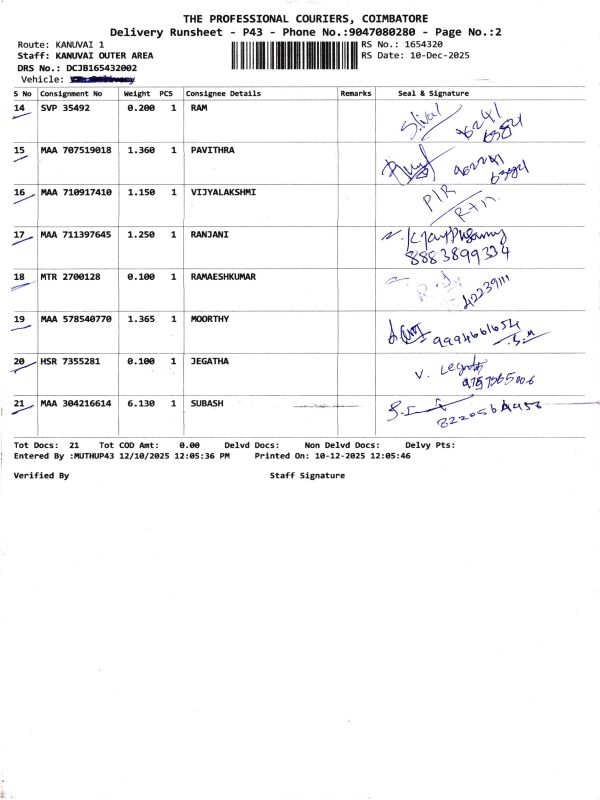 THE PROFESSIONAL COURIERS, COIMBATORE
Delivery Runsheet - P43 - Phone No.:9047080280 - Page No.:2
Route: KANUVAI 1 RS No.: 1654320
Staff: KANUVAI OUTER AREA RS Date: 10-Dec-2025
DRS No.: DCJB165432002
Vehicle:
S No Consignment No Weight PCS Consignee Details Remarks Seal & Signature
14 SVP 35492 0.200 1 RAM
96241
63821
15 MAA 707519018 1.360 1 PAVITHRA
16 MAA 710917410 1.150 1 VIJYALAKSHMI P/R
17 MAA 711397645 1.250 1 RANJANI
8883899334
18 MTR 2700128 0.100 1 RAMAESHKUMAR
42239111
19 MAA 578540770 1.365 1 MOORTHY 9994661654
20 HSR 7355281 0.100 1 JEGATHA V.
21 MAA 304216614 6.130 1 SUBASH
Tot Docs: 21 Tot COD Amt: 0.00 Delvd Docs: Non Delvd Docs: Delvy Pts:
Entered By :MUTHUP43 12/10/2025 12:05:36 PM Printed On: 10-12-2025 12:05:46
Verified By Staff Signature